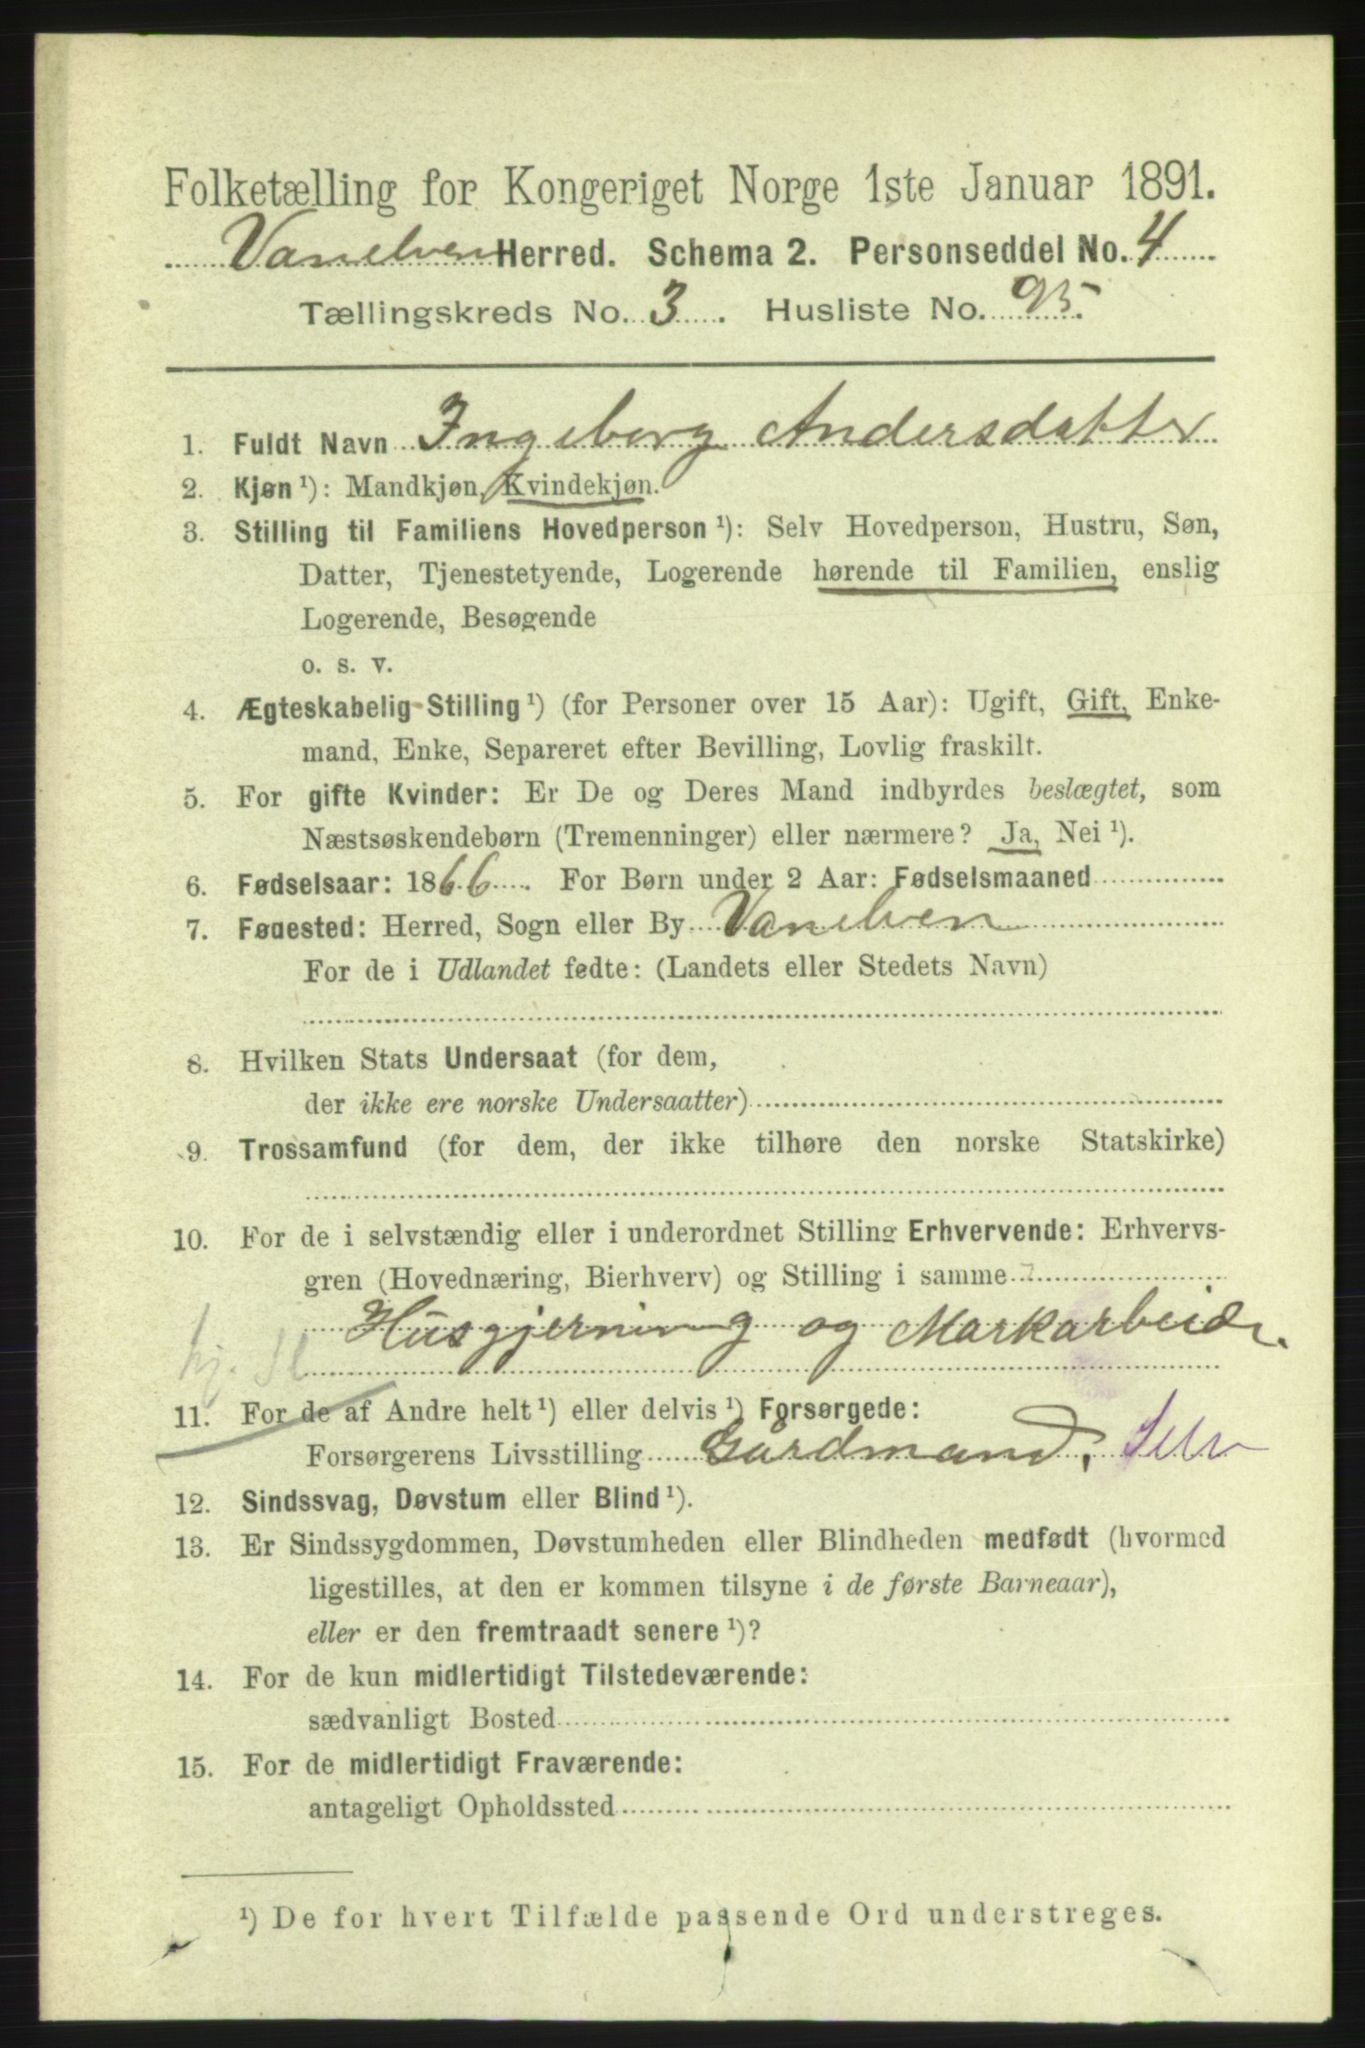 Folketælling for Kongeriget Norge 1ste Januar 1891.
Vanelven Herred. Schema 2. Personseddel No. 4
Tællingskreds No. 3. Husliste No. 95.
1. Fuldt Navn Ingeborg Andersdatter
2. Kjøn ¹): Mandkjøn, Kvindekjøn.
3. Stilling til Familiens Hovedperson ¹): Selv Hovedperson, Hustru, Søn,
Datter, Tjenestetyende, Logerende hørende til Familien, enslig
Logerende, Besøgende
o. s. v.
4. Ægteskabelig Stilling ¹) (for Personer over 15 Aar): Ugift, Gift, Enke-
mand, Enke, Separeret efter Bevilling, Lovlig fraskilt.
5. For gifte Kvinder: Er De og Deres Mand indbyrdes beslægtet, som
Næstsøskendebørn (Tremenninger) eller nærmere? Ja, Nei ¹).
6. Fødselsaar: 1866. For Børn under 2 Aar: Fødselsmaaned
7. Fødested: Herred, Sogn eller By Vanelven
For de i Udlandet fødte: (Landets eller Stedets Navn)
8. Hvilken Stats Undersaat (for dem,
der ikke ere norske Undersaatter)
9. Trossamfund (for dem, der ikke tilhøre den norske Statskirke)
10. For de i selvstændig eller i underordnet Stilling Erhvervende: Erhvervs-
gren (Hovednæring, Bierhverv) og Stilling i samme
Husgjerning og Markarbeide.
11. For de af Andre helt ¹) eller delvis ¹) Forsørgede:
Forsørgerens Livsstilling Gårdmand, Selv
12. Sindssvag, Døvstum eller Blind ¹).
13. Er Sindssygdommen, Døvstumheden eller Blindheden medfødt (hvormed
ligestilles, at den er kommen tilsyne i de første Barneaar),
eller er den fremtraadt senere ¹)?
14. For de kun midlertidigt Tilstedeværende:
sædvanligt Bosted
15. For de midlertidigt Fraværende:
antageligt Opholdssted
¹) De for hvert Tilfælde passende Ord understreges.